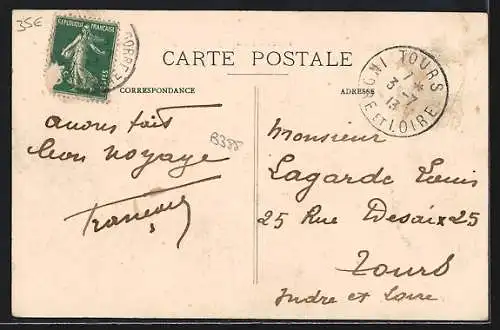 35€
REPUBLIQUE FRANÇAISE
POSTES
CORREZE
CARTE POSTALE
CORRESPONDANCE
ADRESSE
TOURS
7 *
3 -7
13
INDRE ET LOIRE
avons fait
bon voyage
B388
François
Monsieur
Lagarde Louis
25 Rue Desaix 25
Tours
Indre et Loire